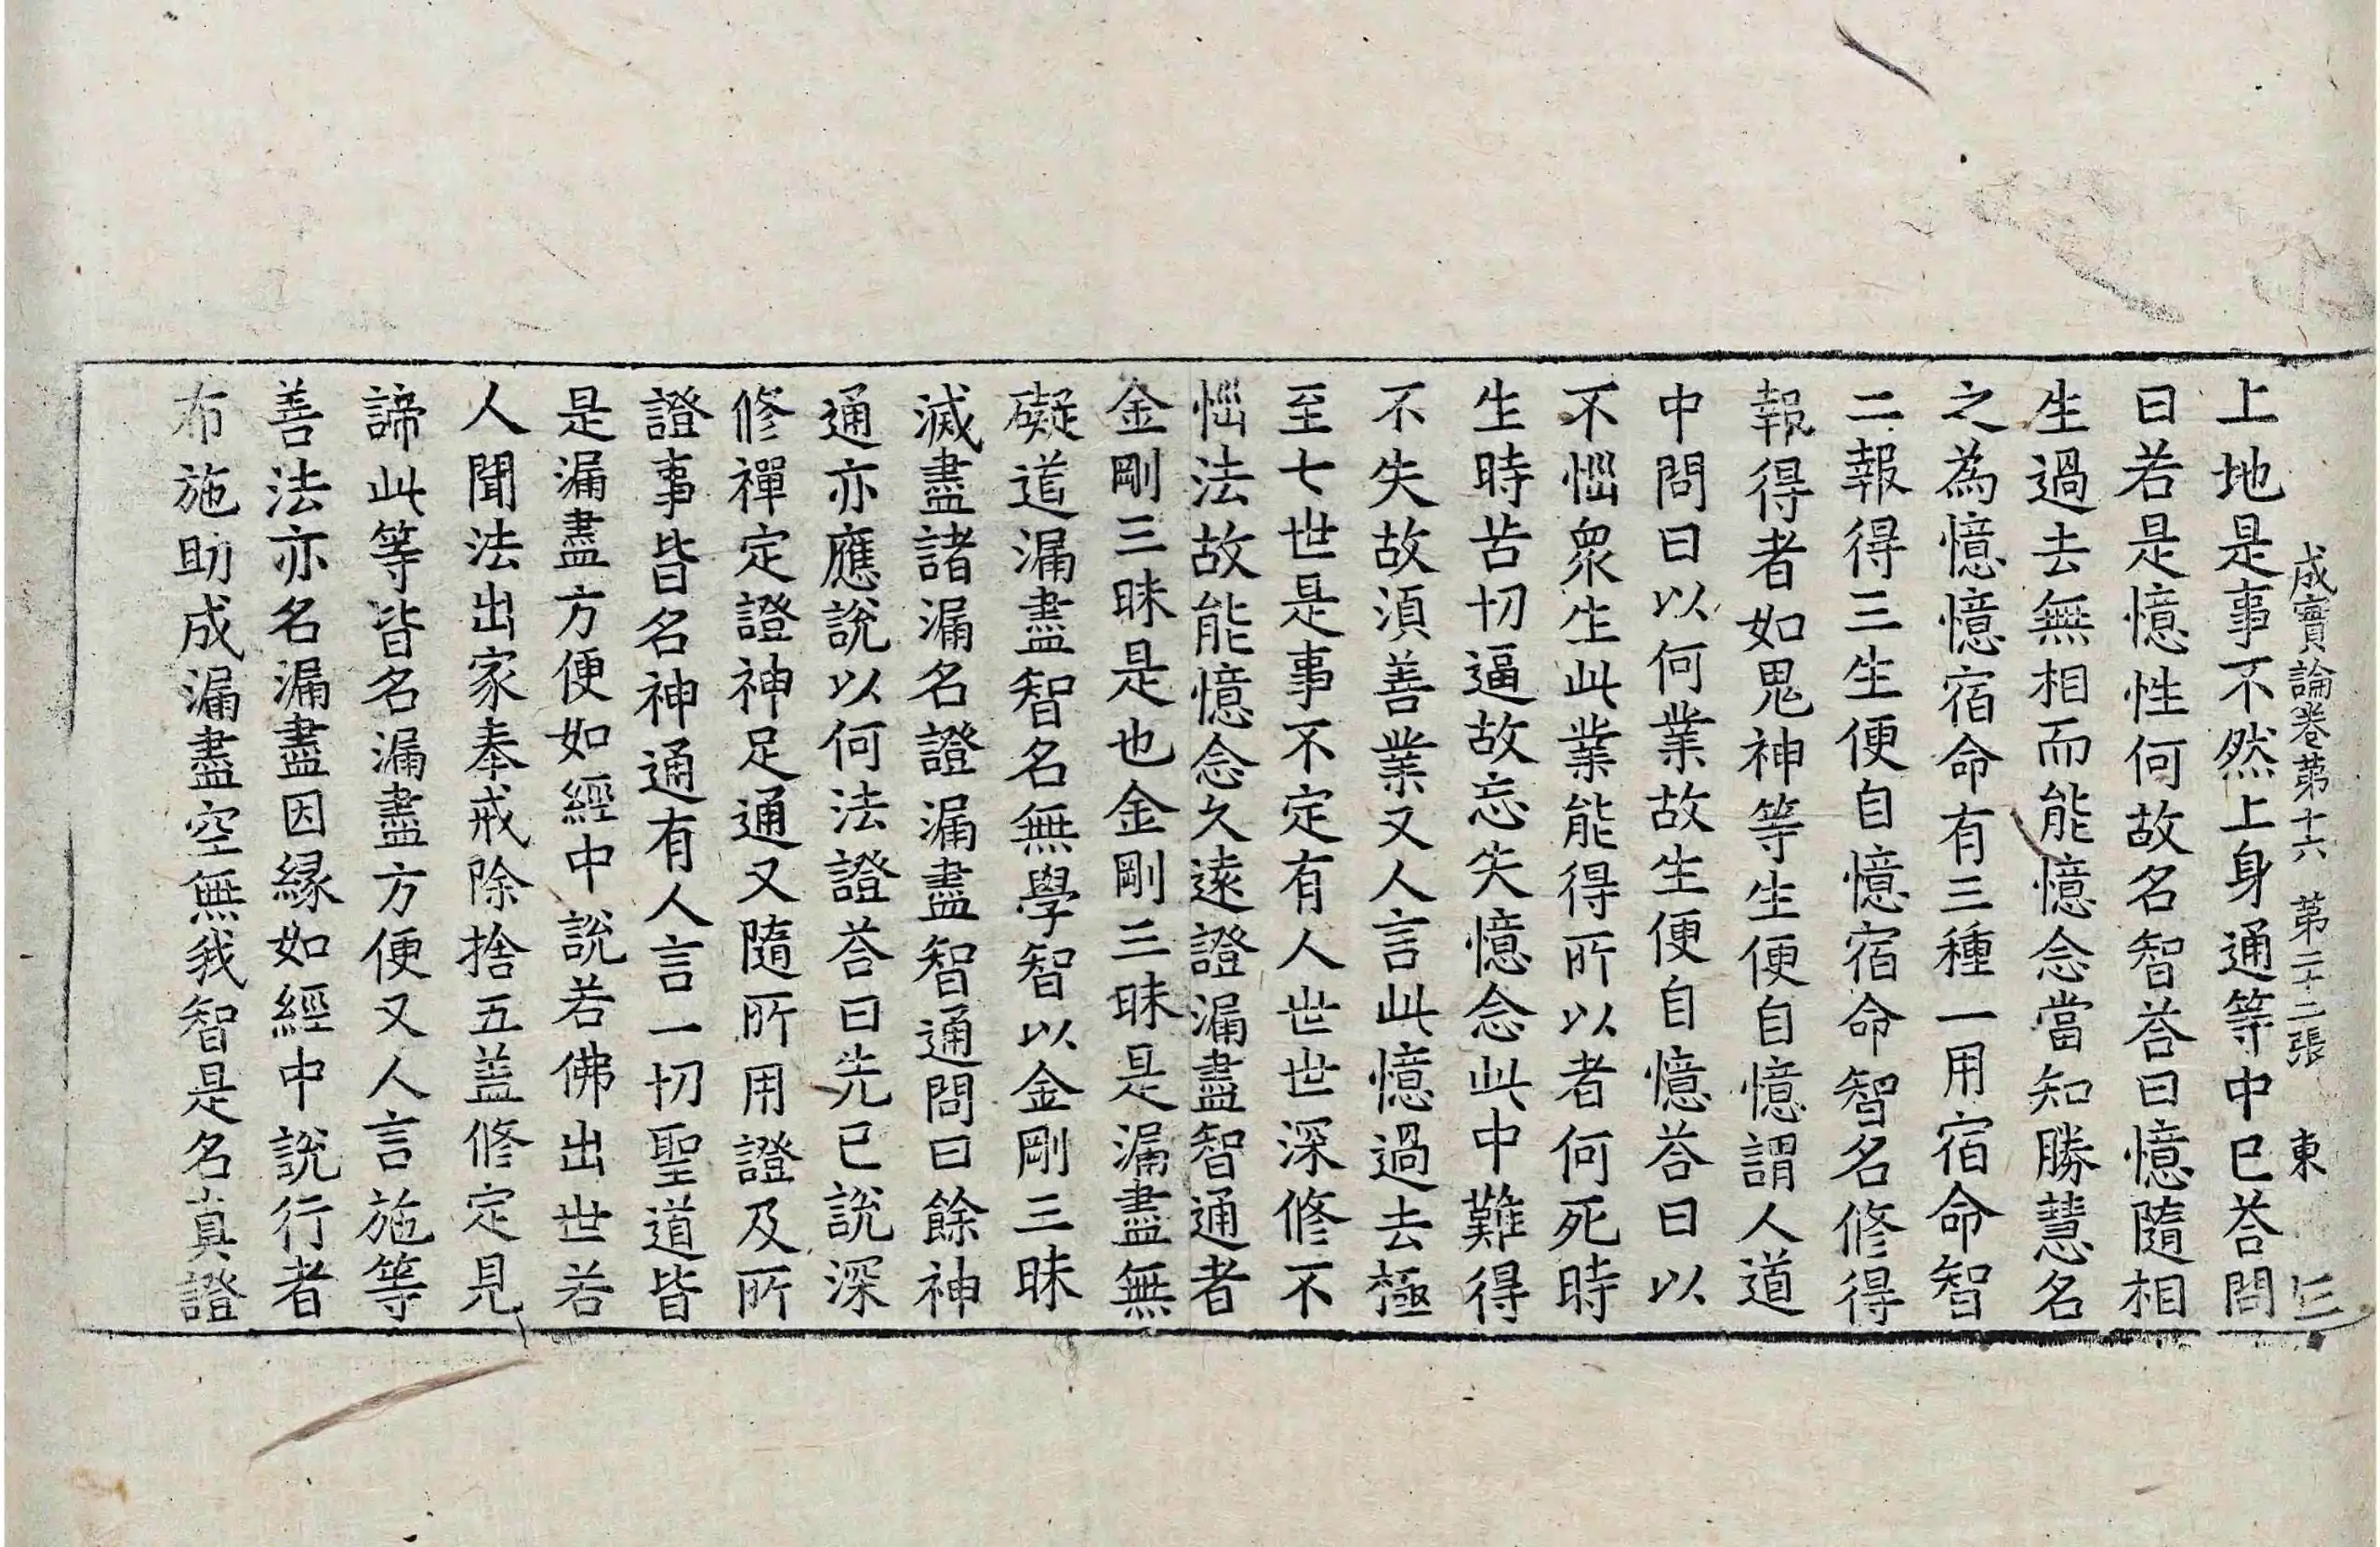 成實論卷第十六 第二十二張 東
上地是事不然上身通等中已荅問
曰若是憶性何故名智荅曰憶隨相
生過去無相而能憶念當知勝慧名
之為憶憶宿命有三種一用宿命智
二報得三生便自憶宿命智名修得
報得者如鬼神等生便自憶謂人道
中問曰以何業故生便自憶荅曰以
不惱衆生此業能得所以者何死時
生時苦切逼故忘失憶念此中難得
不失故須善業又人言此憶過去極
至七世是事不定有人世世深修不
惱法故能憶念久遠證漏盡智通者
金剛三昧是也金剛三昧是漏盡無
礙道漏盡智名無學智以金剛三昧
滅盡諸漏名證漏盡智通問曰餘神
通亦應說以何法證荅曰先已說深
修禪定證神足通又隨所用證及所
證事皆名神通有人言一切聖道皆
是漏盡方便如經中說若佛出世若
人聞法出家奉戒除捨五蓋修定見
諦此等皆名漏盡方便又人言施等
善法亦名漏盡因緣如經中說行者
布施助成漏盡空無我智是名真證